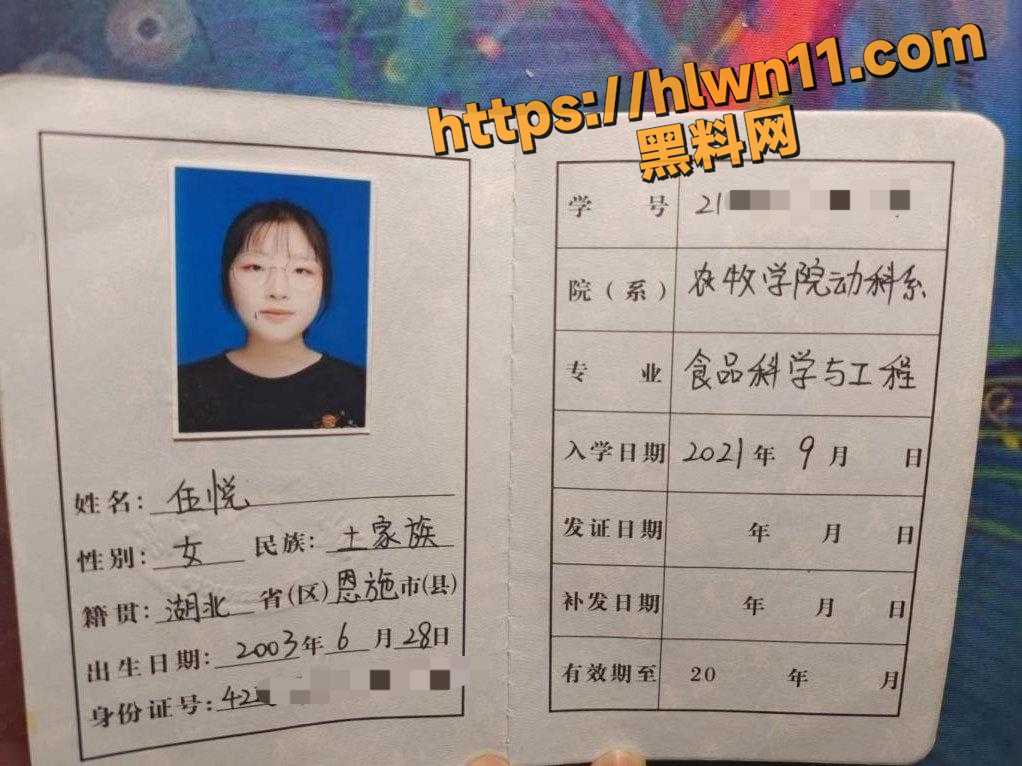 https://hlwn11.com
黑料网
姓名:
性别: 女 民族: 土家族
籍贯: 湖北 省(区) 恩施 市(县)
出生日期: 2003 年 6 月 28 日
身份证号: 42
学号 21
院(系) 农牧学院动科系
专业 食品科学与工程
入学日期 2021 年 9 月 日
发证日期 年 月 日
补发日期 年 月 日
有效期至 20 年 月